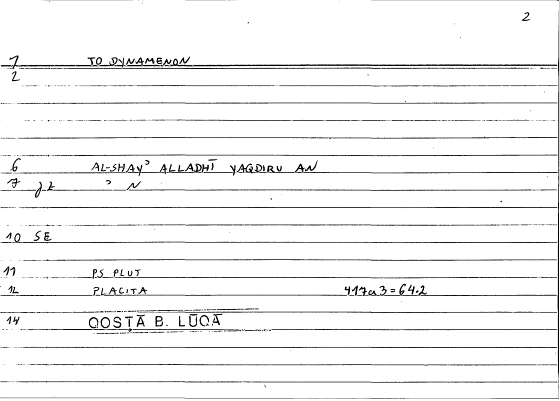 2
1 TO DYNAMENON
2
6 AL-SHAYʾ ALLADHĪ YAQDIRU AN
7 ʾ N
10 SE
11 PS PLUT
12 PLACITA 417a3=64.2
14 QOSṬĀ B. LŪQĀ